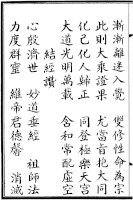 漸漸離迷入覺　雙修性命為宗
此則大乘證果　尤當盲抱大同
化己化人歸正　同登極樂天宮
大道光明萬載　合和常配虛空
結經讚
心殷濟世　妙道垂經　祖師法
力度群靈　維帝君德馨　消滅